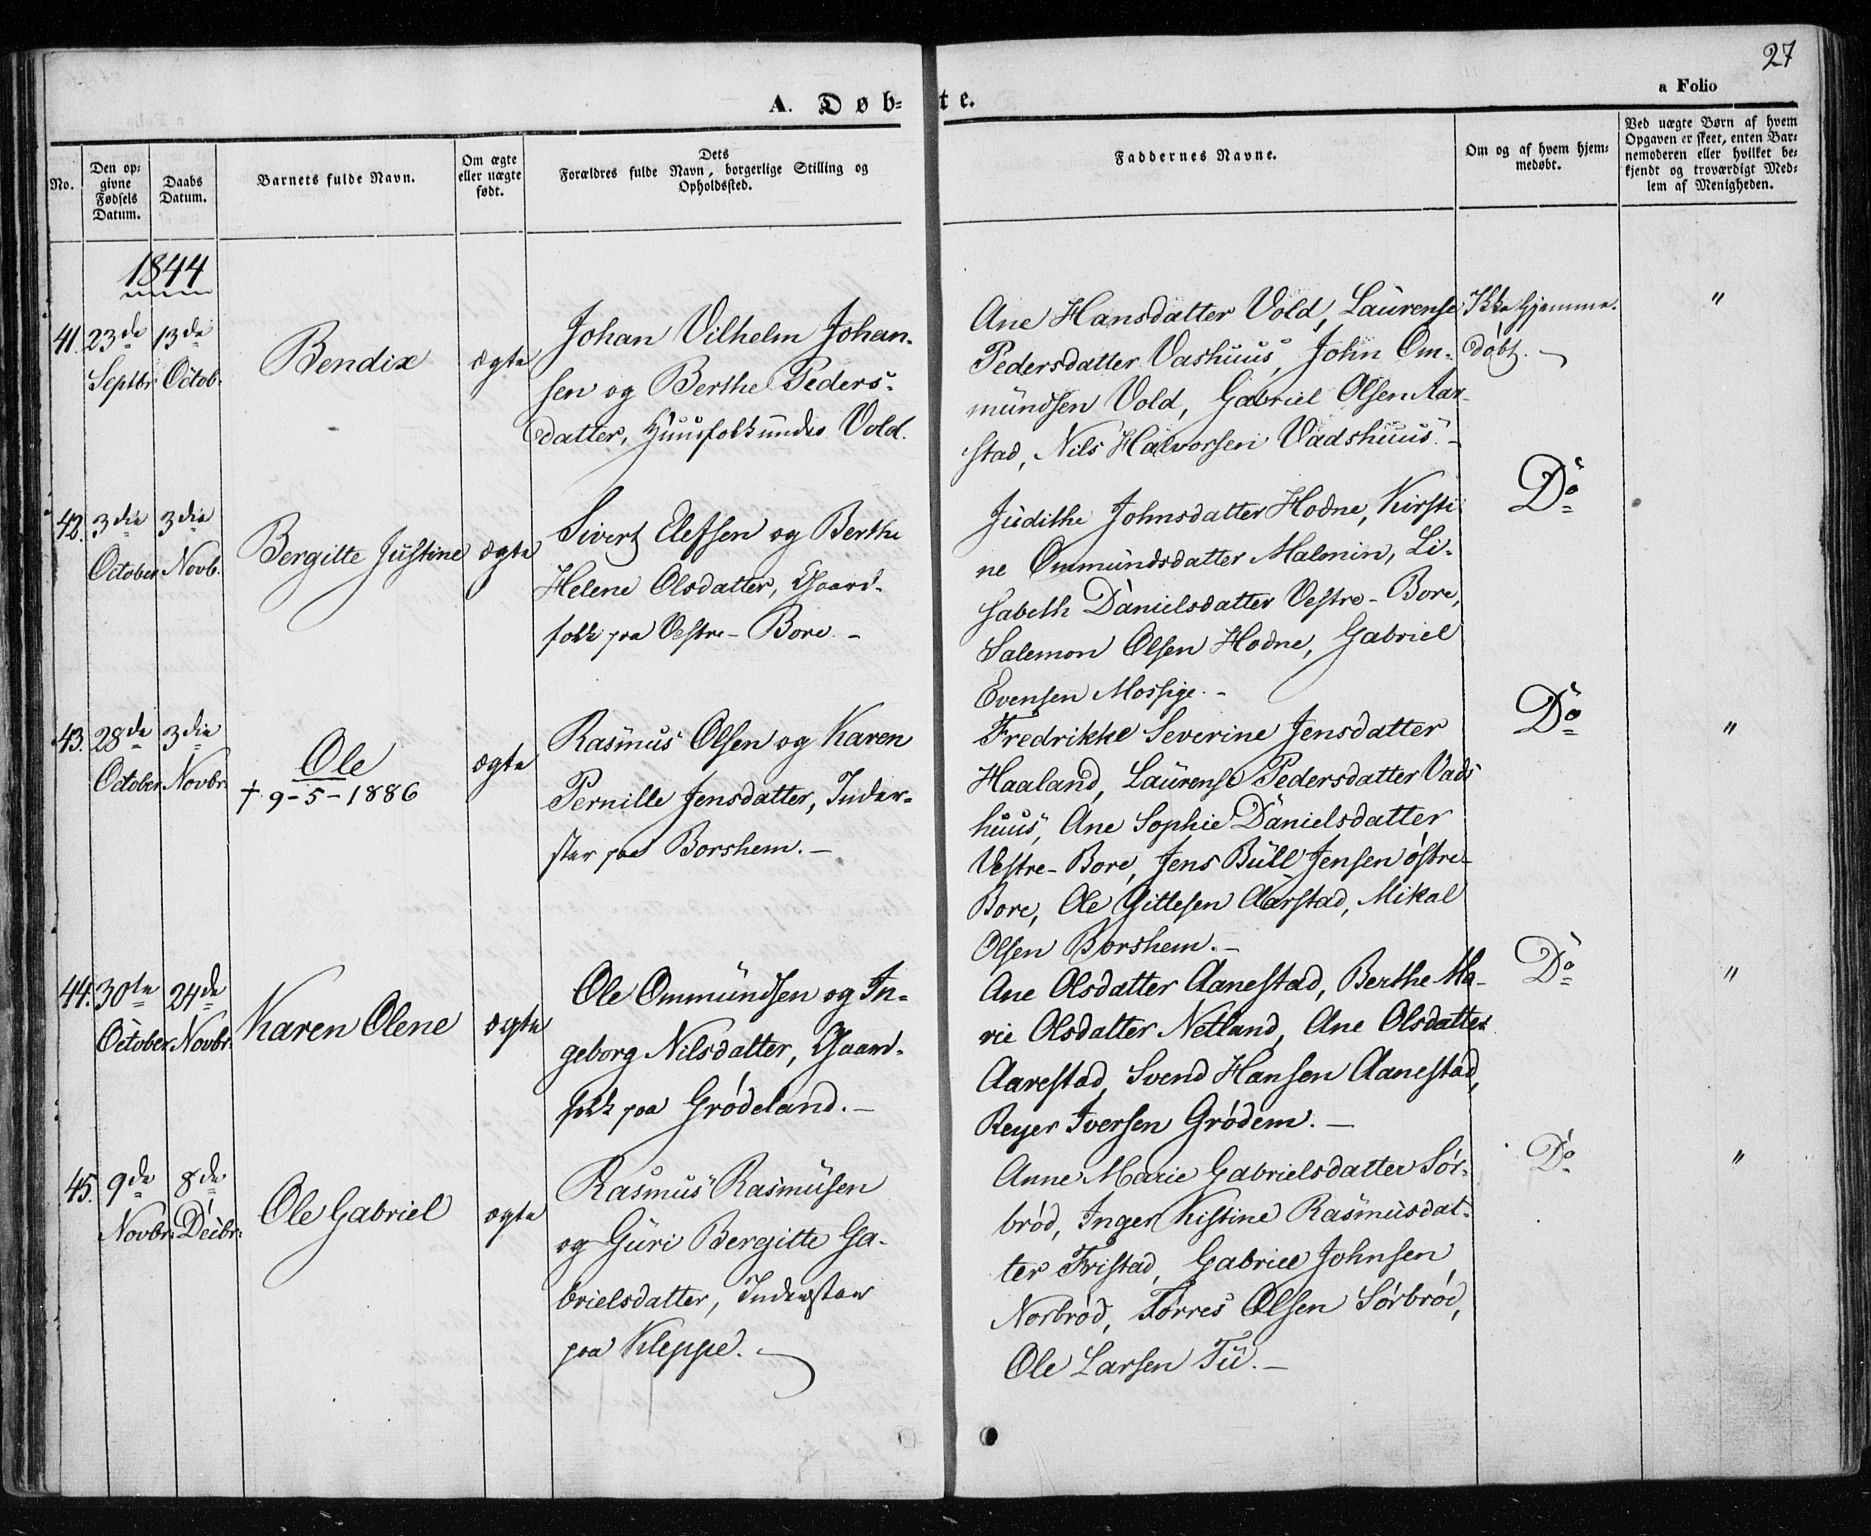 27
A. Døb-
te.
a Folio
No.
Den op-
givne
Fødsels
Datum.
Daabs
Datum.
Barnets fulde Navn.
Om ægte
eller uægte
født.
Dets
Forældres fulde Navn, borgerlige Stilling og
Opholdssted.
Faddernes Navne.
Om og af hvem hjem-
medøbt.
Ved uægte Børn af hvem
Opgaven er skeet, enten Bar-
nemoderen eller hvilket be-
kjendt og troværdigt Med-
lem af Menigheden.
1844
41.
23de
Septbr
13de
Octob.
Bendix
ægte
Johan Vilhelm Johan-
sen og Berthe Peders-
datter, Huusfolk under Vold.
Ane Hansdatter Vold, Laurense
Pedersdatter Vashuus, John Om-
mundsen Vold, Gabriel Olsen Aar-
stad, Nils Halvorsen Vadshuus.-
Ikke hjemme-
døbt.-
"
42.
3die
October
3die
Novb.
Bergitte Justine
ægte
Sivert Elefsen og Berthe
Helene Olsdatter, Gaard-
folk paa Vestre-Bore.-
Judithe Johnsdatter Hodne, Kirsti-
ne Ommundsdatter Malmin, Li-
sabeth Danielsdatter Vestre-Bore,
Salemon Olsen Hodne, Gabriel
Evensen Mossige.-
Do
43.
28de
October
3die
Novbr
Ole
† 9-5-1886
ægte
Rasmus Olsen og Karen
Pernille Jensdatter, Inder-
ster paa Borshem.-
Fredrikke Severine Jensdatter
Haaland, Laurense Pedersdatter Vads
huus, Ane Sophie Danielsdatter
Vestre-Bore, Jens Büll Jensen østre-
Bore, Ole Gittesen Aarstad, Mikal
Olsen Borshem.-
Do
"
44.
30te
October
24de
Novbr.
Karen Olene
ægte
Ole Ommundsen og In-
geborg Nilsdatter, Gaard-
folk paa Grødeland.-
Ane Olsdatter Aanestad, Berthe Ma-
rie Olsdatter Netland, Ane Olsdatter
Aarestad, Svend Hansen Aanestad,
Reyer Iversen Grødem.-
Do
"
45.
9de
Novbr.
8de
Decbr.
Ole Gabriel
ægte
Rasmus Rasmusen
og Guri Bergitte Ga-
brielsdatter, Inderster
paa Kleppe.-
Anne Marie Gabrielsdatter Sør-
brød, Inger Kistine Rasmusdat-
ter Fristad, Gabriel Johnsen
Norbrød, Tørres Olsen Sørbrød,
Ole Larsen Tu.-
Do
"